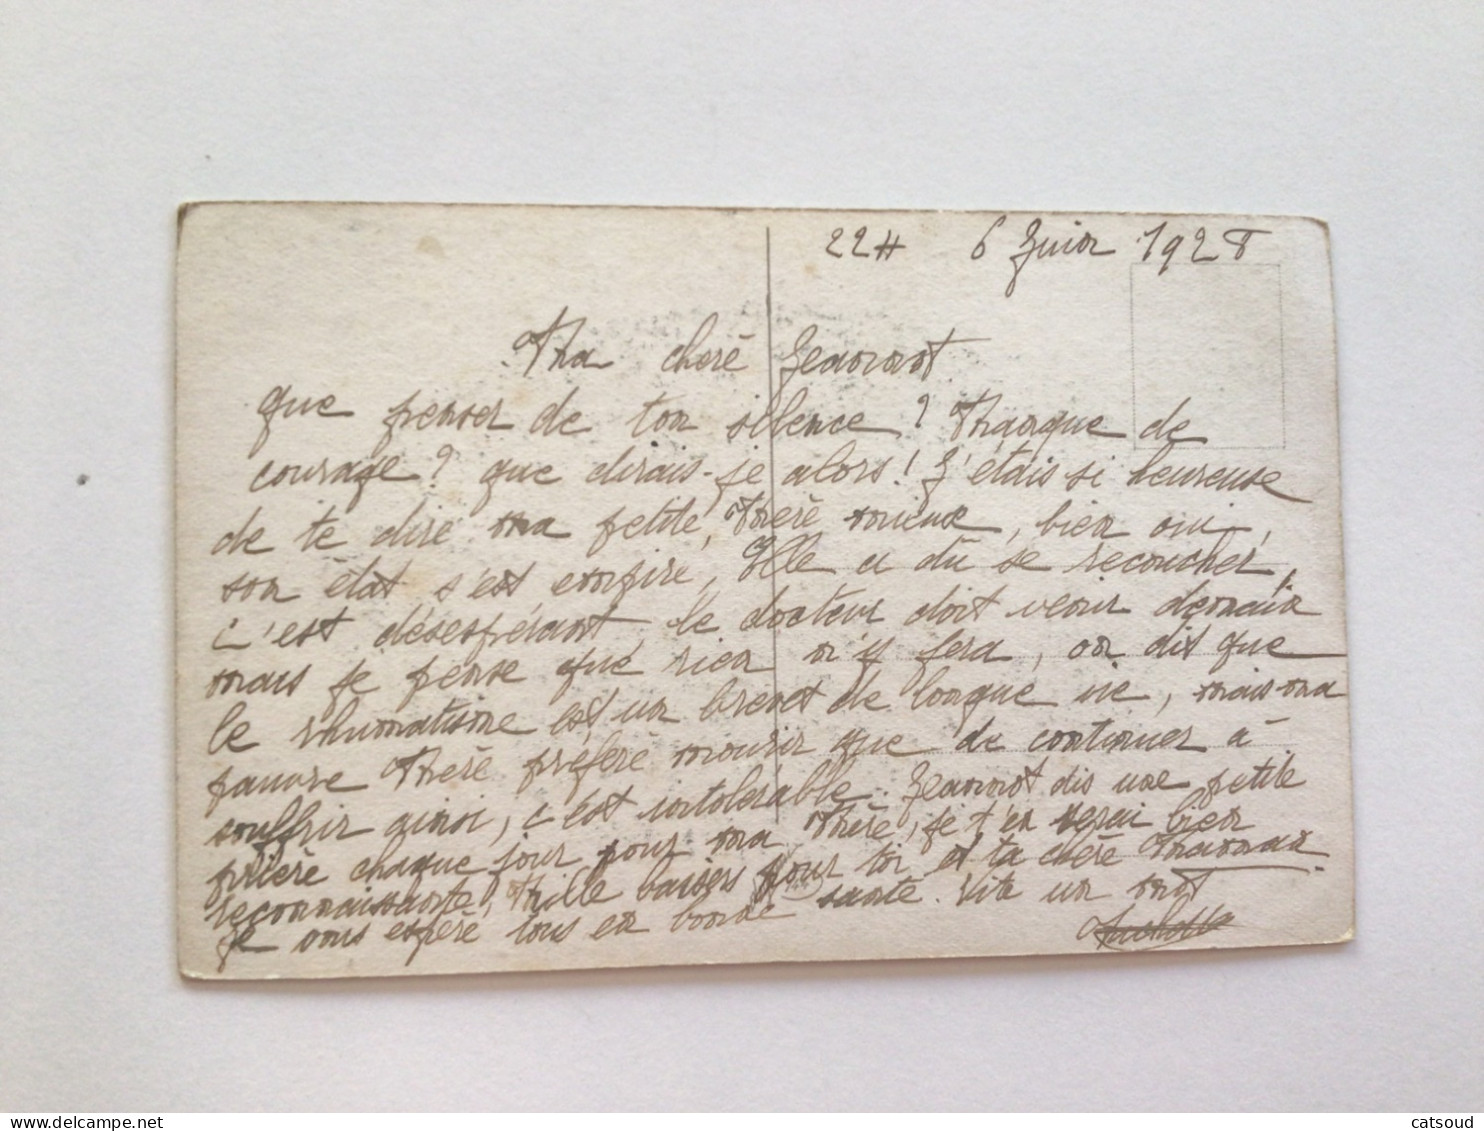 22H 6 Juin 1928
Ma chère Jeannot
que penser de ton silence ? Manque de
courage ? que dirais-je alors ! J'étais si heureuse
de te dire ma petite, Mère mieux, bien oui,
son état s'est empiré, Elle a dû se recoucher,
c'est désespérant, le docteur doit venir demain
mais je pense que rien n'y fera, on dit que
le rhumatisme est un brevet de longue vie, mais ma
pauvre Mère préfère mourir que de continuer à
souffrir ainsi, c'est intolérable. Jeannot dis une petite
prière chaque jour pour ma Mère, je t'en serai bien
reconnaissante, Mille baisers pour toi et ta chère Maman
Je vous espère tous en bonne santé. Vite un mot
catsoud